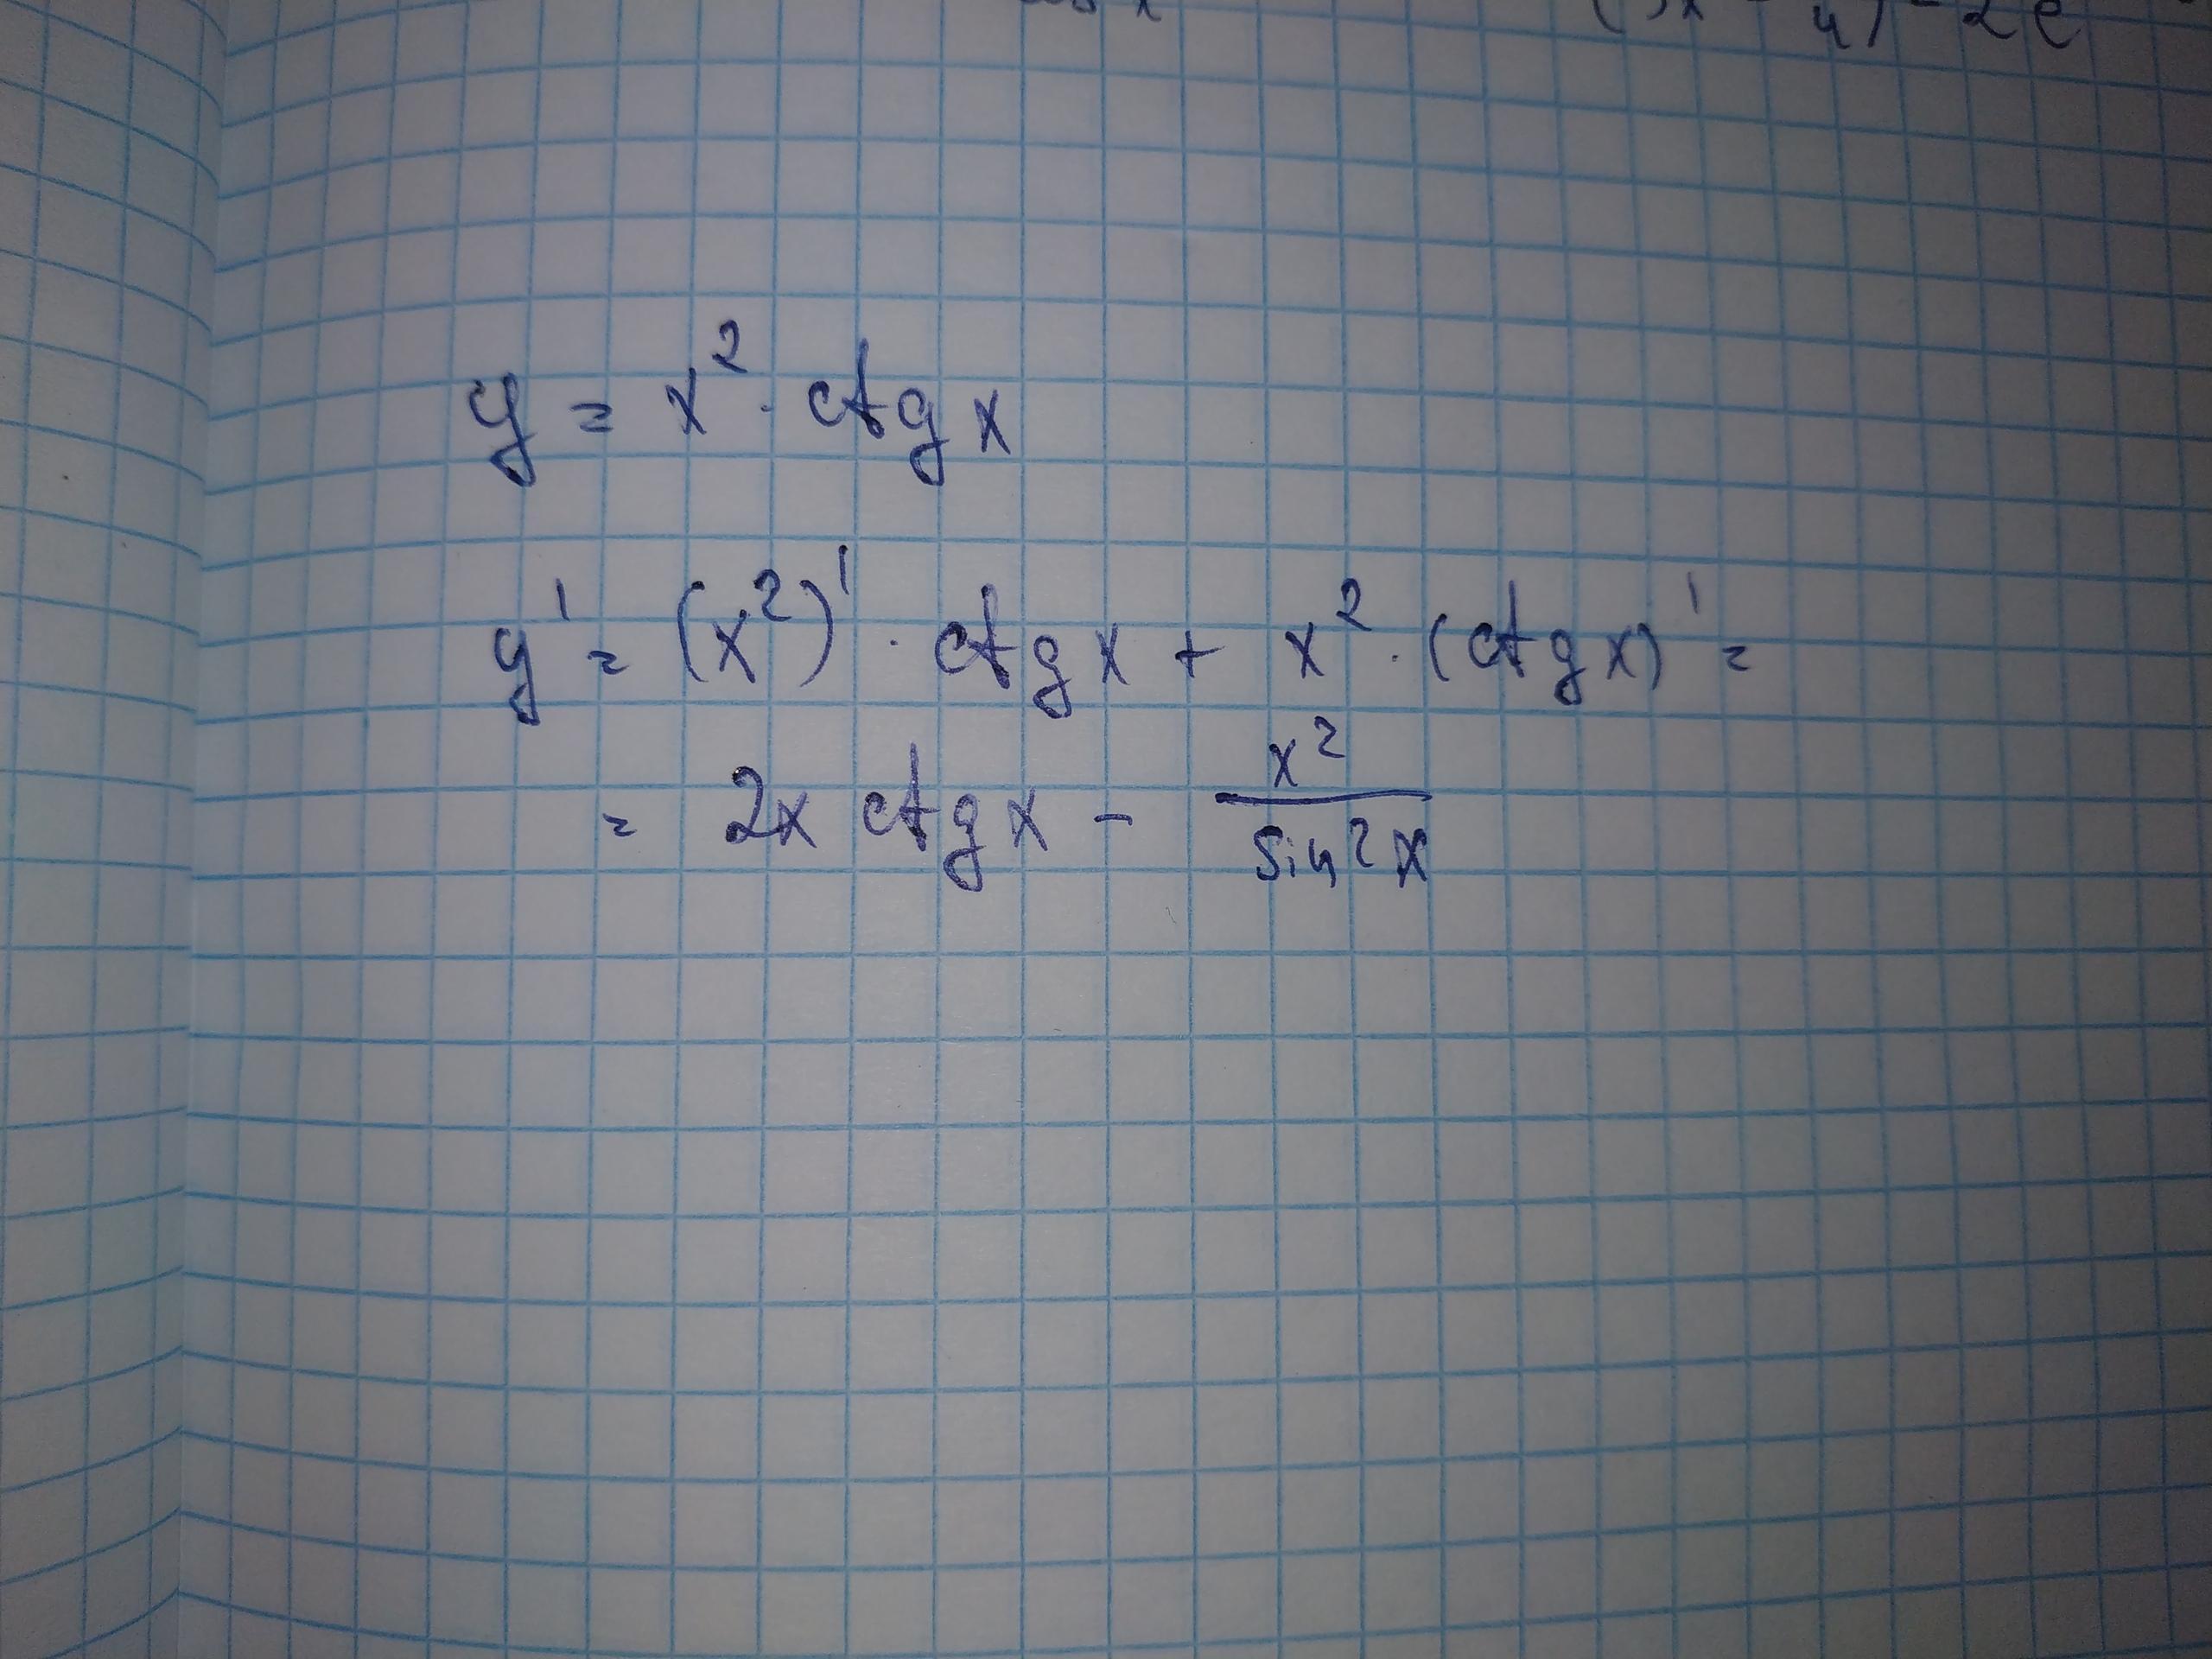 y = x² · ctg x
y' = (x²)' · ctg x + x² · (ctg x)' =
= 2x ctg x - x²/sin²x